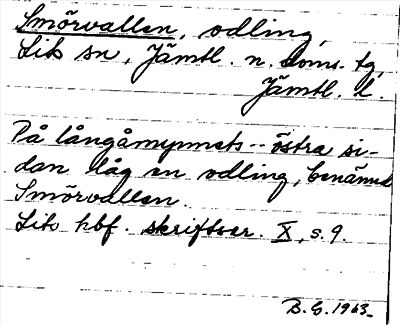 Smörvallen, odling,
Lits sn, Jämtl. n. doms. tg,
Jämtl. l.
På långåmynnets -- östra si-
dan låg en odling, benämnd
Smörvallen.
Lits hbf. skriftser. X, s. 9.
B. G. 1963.